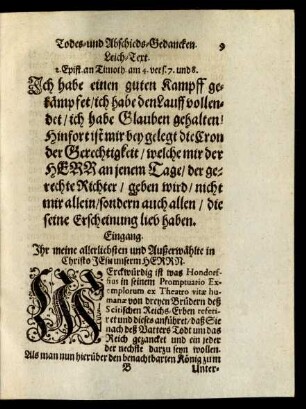 Todes-und Abschieds-Gedancken. 9
Leich-Text.
2. Epist. an Timoth. am 4. vers. 7. und 8.
Ich habe einen guten Kampff ge-
kämpfet/ ich habe den Lauff vollen-
det/ ich habe Glauben gehalten/
Hinfort ist mir bey gelegt die Cron
der Gerechtigkeit/ welche mir der
HERR an jenem Tage/ der ge-
rechte Richter/ geben wird/ nicht
mir allein/ sondern auch allen/ die
seine Erscheinung lieb haben.
Eingang.
Ihr meine allerliebsten und Außerwählte in
Christo JEsu unserm HERRN.
MErckwürdig ist was Hondorf-
fius in seinem Promptuario Ex-
emplorum ex Theatro vitæ hu-
manæ von dreyen Brüdern deß
Scitischen Reichs-Erben referi-
ret und dieses anführet/ daß Sie
nach deß Vatters Todt um das
Reich gezancket und ein jeder
der nechste darzu seyn wollen.
Als man nun hierüber den benachtbarten König zum
B Unter-